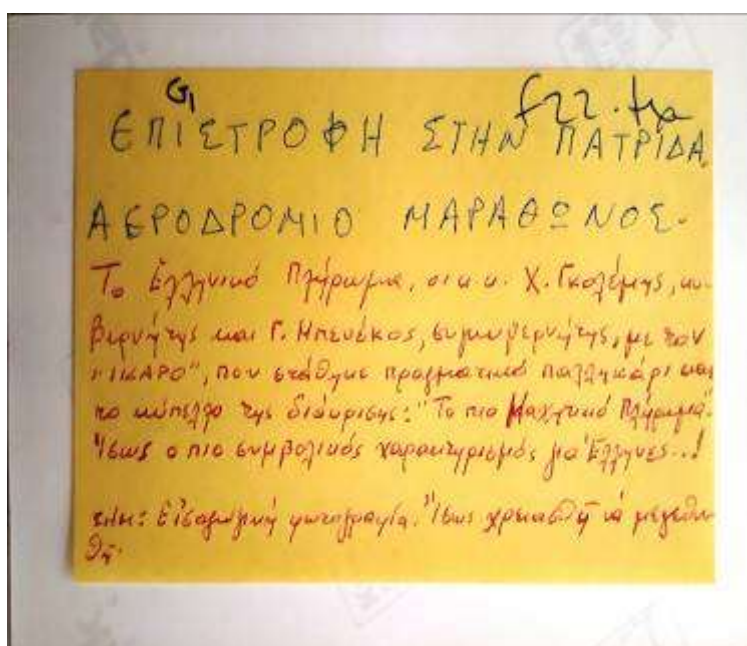 G1
f22.
ΕΠΙΣΤΡΟΦΗ ΣΤΗΝ ΠΑΤΡΙΔΑ.
ΑΕΡΟΔΡΟΜΙΟ ΜΑΡΑΘΩΝΟΣ.
Το Ἑλληνικό Πλήρωμα, οι κ.κ. Χ. Γκολέμης, κυ-
βερνήτης και Γ. Μπενέκος, συγκυβερνήτης, με τον
"ΙΚΑΡΟ", που στάθηκε πραγματικό παλληκάρι και
το κύπελλο της διάκρισης: "Το πιο Μαχητικό Πλήρωμα".
Ἴσως ο πιο συμβολικός χαρακτηρισμός για Ἕλληνες..!
ΣΗΜ: Εἰσαγωγική φωτογραφία. Ἴσως χρειασθῆ νά μεγεθυν
θῆ.